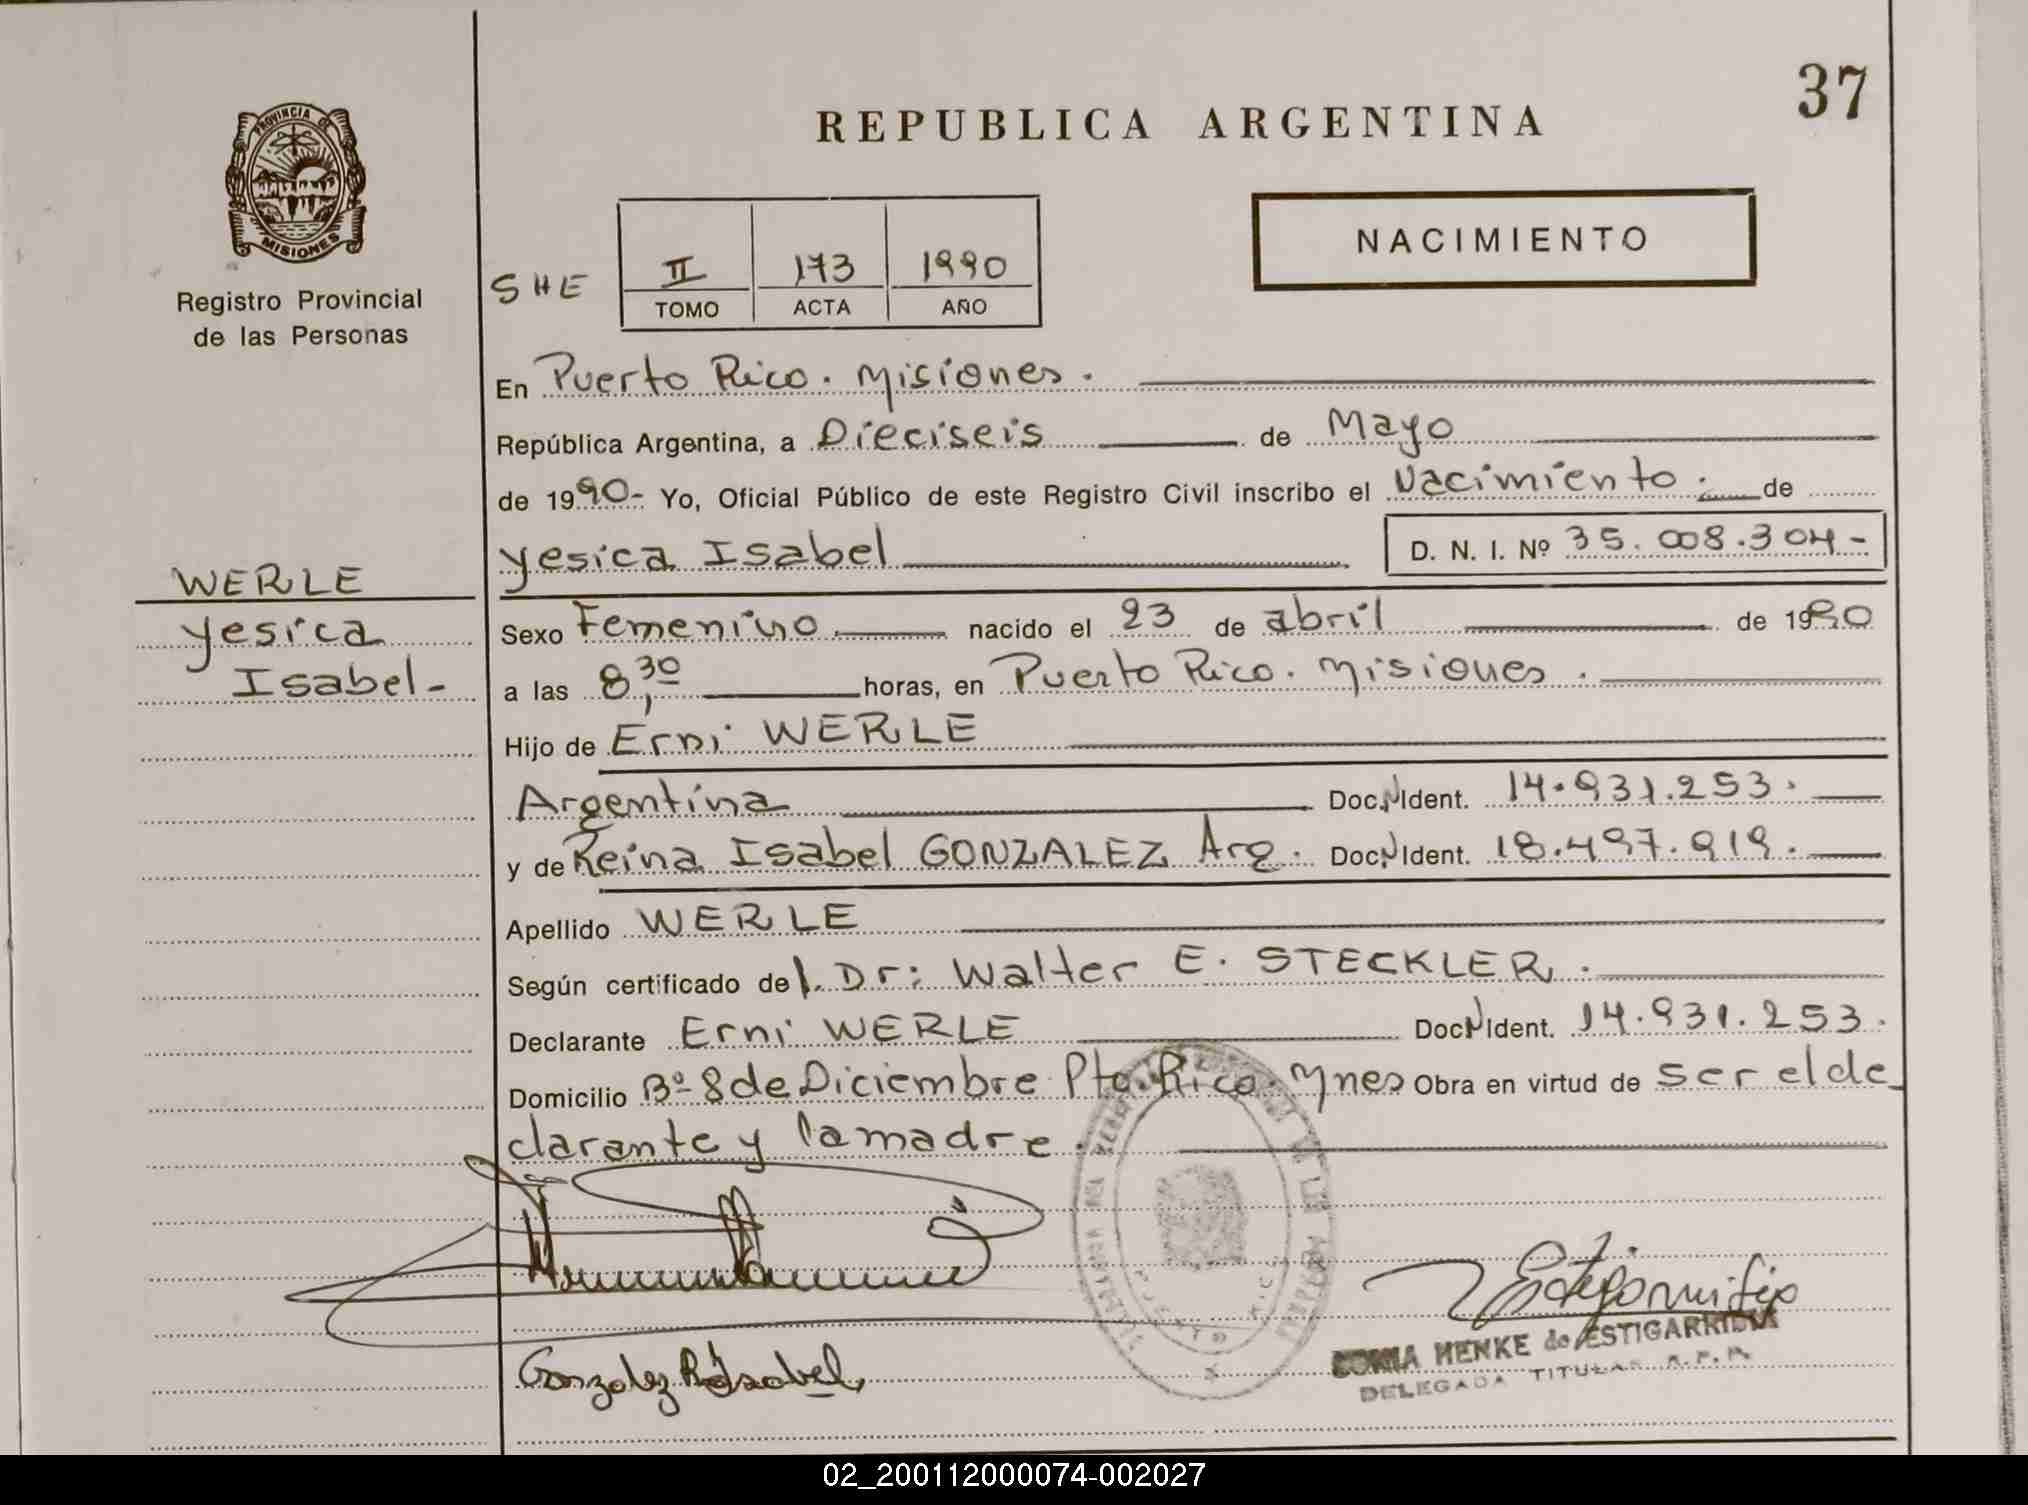 37
REPUBLICA ARGENTINA
PROVINCIA DE
MISIONES
Registro Provincial
de las Personas
NACIMIENTO
SHE
II 173 1990
TOMO ACTA AÑO
En Puerto Rico. Misiones.
República Argentina, a Dieciseis de Mayo
de 1990- Yo, Oficial Público de este Registro Civil inscribo el Nacimiento. de
Yesica Isabel D. N. I. Nº 35.008.304-
WERLE
Yesica
Isabel-
Sexo Femenino nacido el 23 de abril de 1990
a las 8,30 horas, en Puerto Rico. Misiones.
Hijo de Erni WERLE
Argentina Doc.N Ident. 14.931.253.
y de Reina Isabel GONZALEZ Arg. Doc.N Ident. 18.497.919.
Apellido WERLE
Según certificado del. Dr: Walter E. STECKLER.
Declarante Erni WERLE Doc N Ident. 14.931.253.
Domicilio Bº 8 de Diciembre Pto. Rico. Mnes Obra en virtud de ser el de
clarante y la madre.
Gonzalez R Isabel
HENKE de ESTIGARRIBIA
DELEGADA TITULAR R.P.P.
PUERTO RICO
02_200112000074-002027